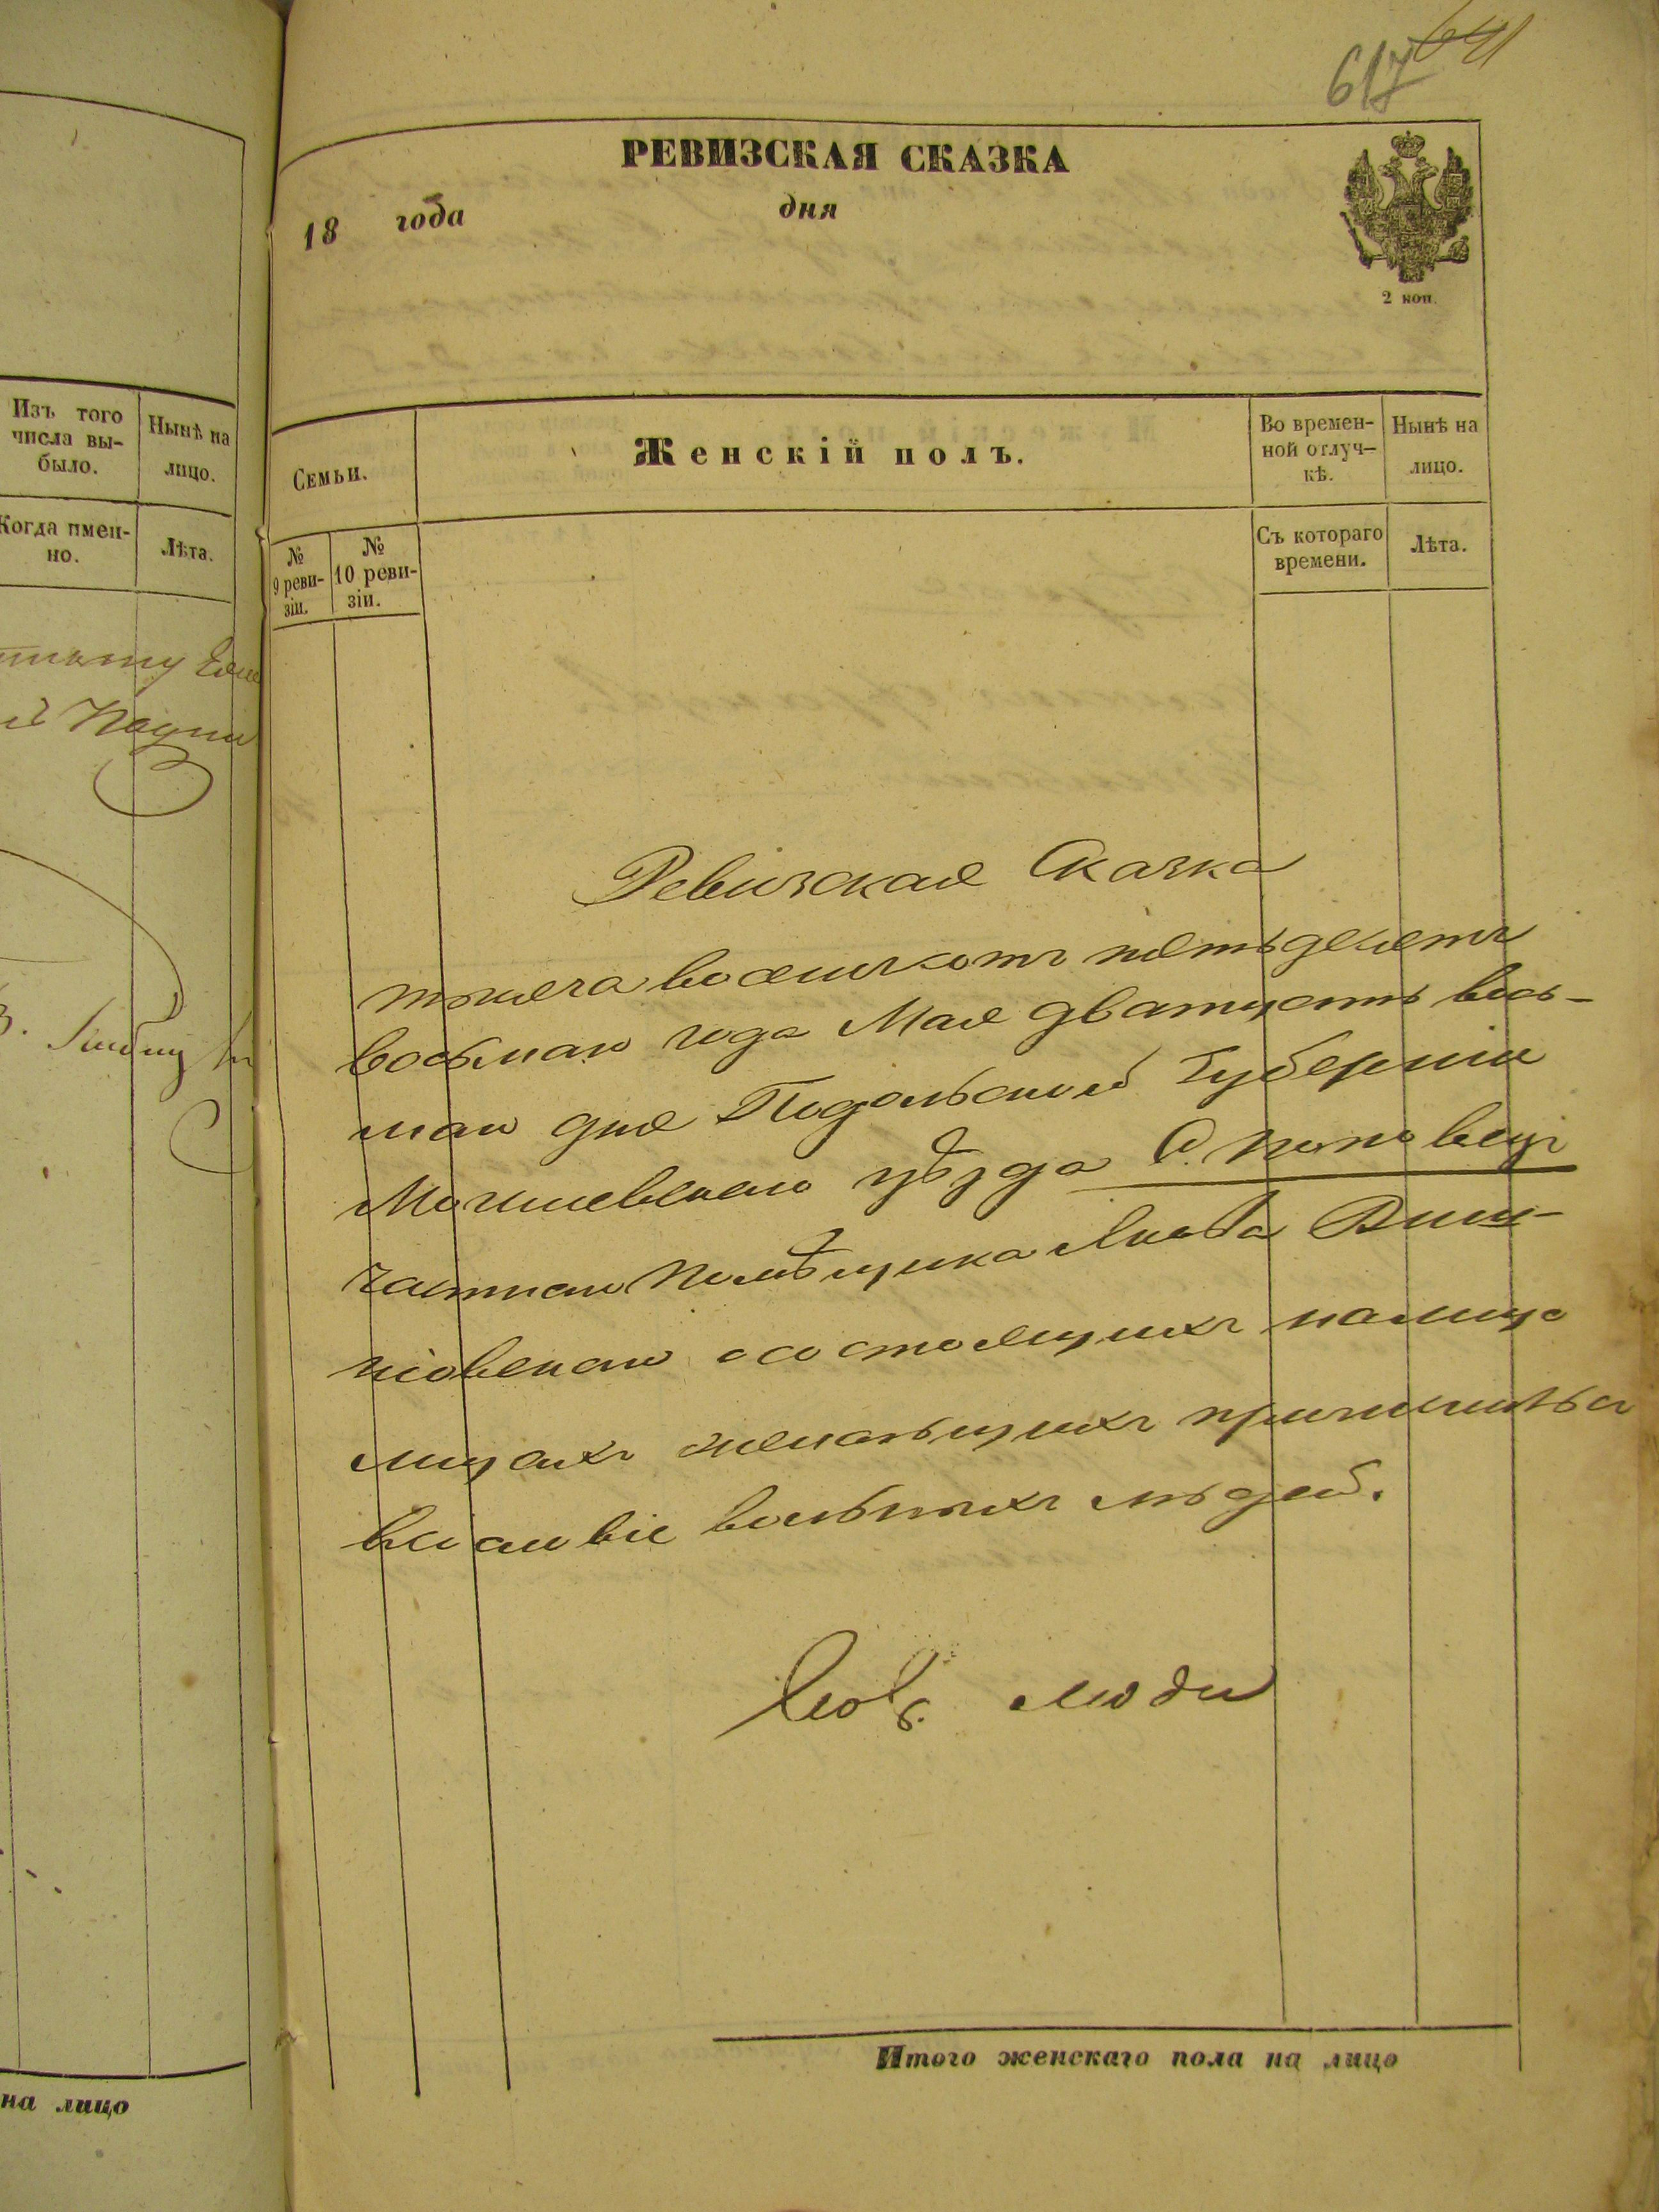 617 641
РЕВИЗСКАЯ СКАЗКА
18 года дня
2 коп.
Изъ того числа вы-
было.
Нынѣ на
лицо.
Когда имен-
но.
Лѣта.
на лицо
Семьи.
Женскій полъ.
Во времен-
ной отлуч-
кѣ.
Нынѣ на
лицо.
№
9 реви-
зіи.
№
10 реви-
зіи.
Съ котораго
времени.
Лѣта.
Ревизская Сказка
тысяча восемьсотъ пятьдесятъ
восьмаго года Мая дватцать вось-
маго дня Подольской Губерніи
Могилевскаго уѣзда С. Поповецъ
частнаго помѣщика Якова
состоящихъ налицо
лицахъ желающихъ причислиться
вольныхъ людей.
люди
Итого женскаго пола на лицо